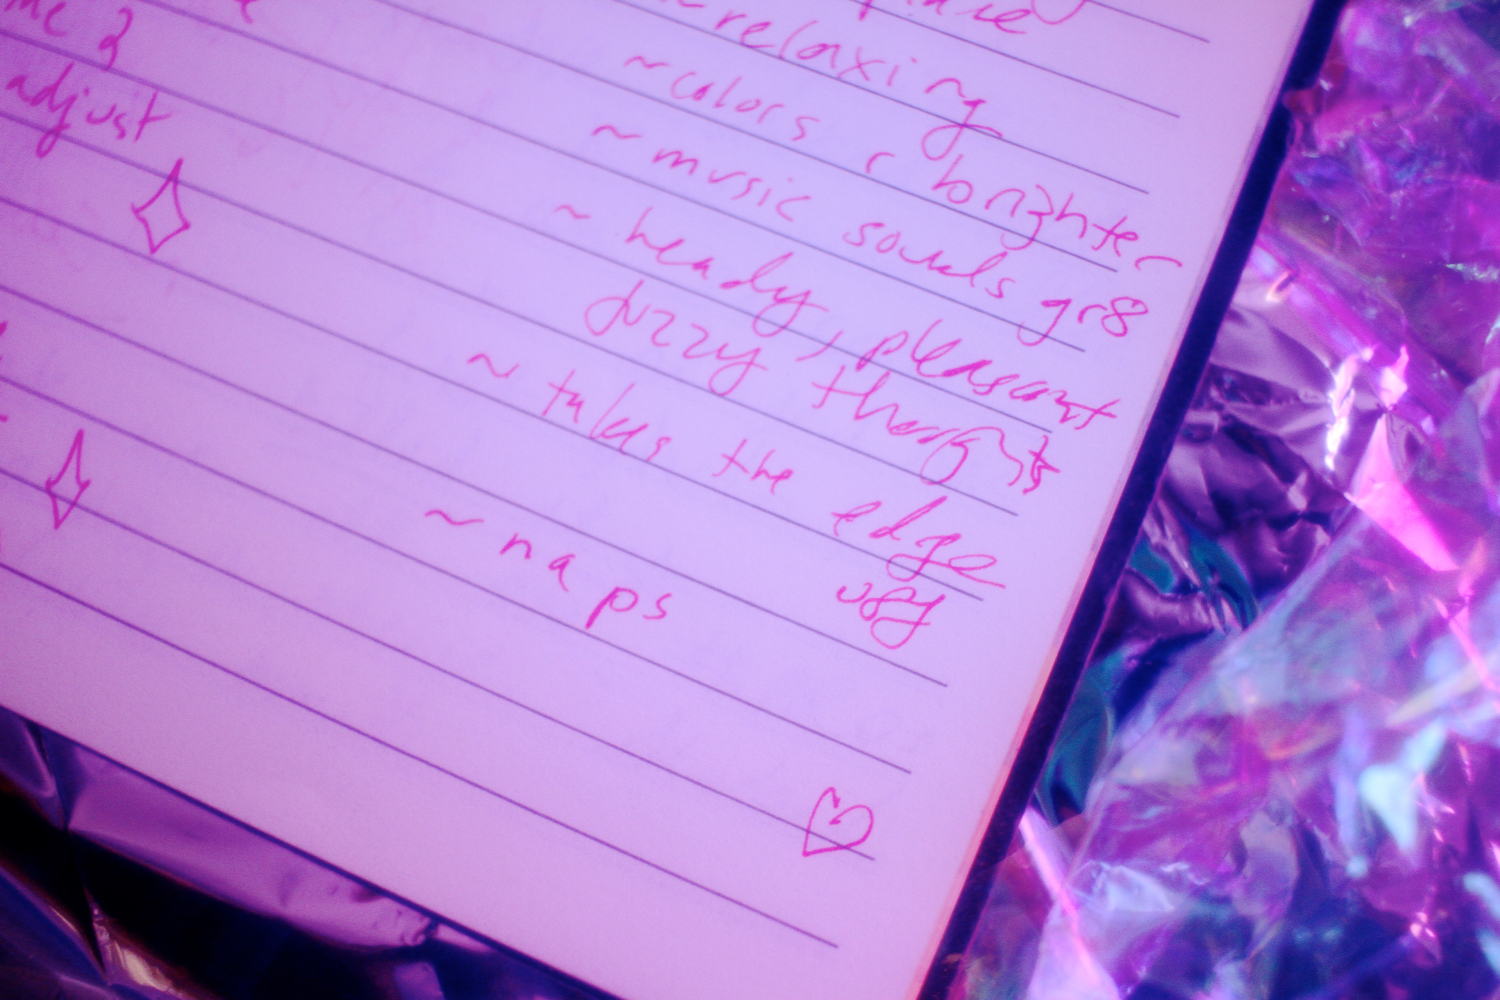 adjust
~relaxing
~colors r brighter
~music sounds gr8
~heady, pleasant
fuzzy thoughts
~takes the edge
~naps